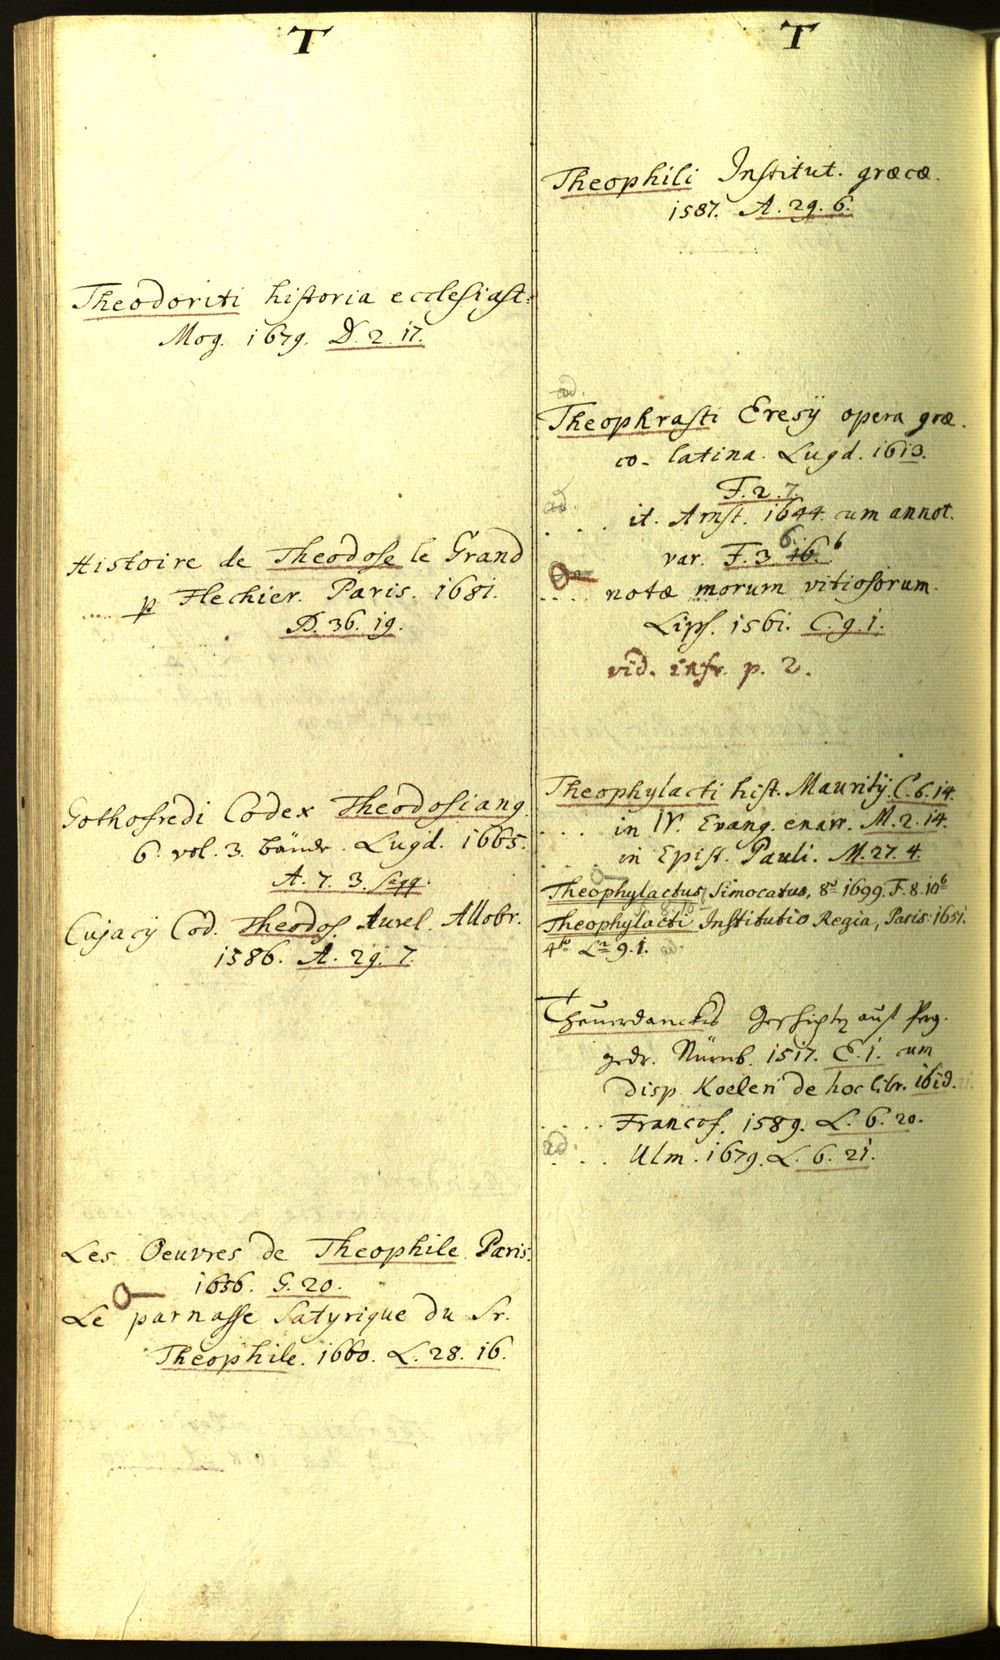 T
Theodoriti historia ecclesiast:
Mog. 1679. D. 2. 17.
Histoire de Theodose le Grand
.... p Flechier. Paris. 1681.
D. 36. 19.
Gothofredi Codex Theodosiang
6. vol. 3. bände. Lugd. 1665.
A. 7. 3. seqq.
Cujacÿ Cod. Theodos. Aurel. Allobr.
1586. A. 29. 7.
Les Oeuvres de Theophile Paris.
1656. G. 20.
Le parnasse Satyrique du Sr.
Theophile. 1660. L. 28. 16.
T
Theophili Institut. græcæ.
1587. A. 29. 6.
ad.
Theophrasti Eresÿ opera græ.
co- latina. Lugd. 1613.
F. 2. 7.
ad. . . it. Amst. 1644. cum annot.
var. F. 3 16. 6 b
.... notæ morum vitiosorum.
Lips. 1561. C. 9. 1.
vid. infr. p. 2.
Theophylacti hist. Mauritÿ. C. 6. 14.
. . . . in IV. Evang. enarr. M. 2. 14.
. . . . in Epist. Pauli. M. 27. 4.
Theophylactus Simocatus, 8° 1699. F. 8. 10 b
Theophylacti Institutio Regia, Paris 1651.
4to L 9. 1.
Theuerdancks Geschichte auf Perg.
gedr. Nürnb. 1517. E. 1. cum
disp Koeleri de hoc libr. ibid.
. . . . Francof. 1589. L. 6. 20.
ad. . . Ulm. 1679. L. 6. 21.